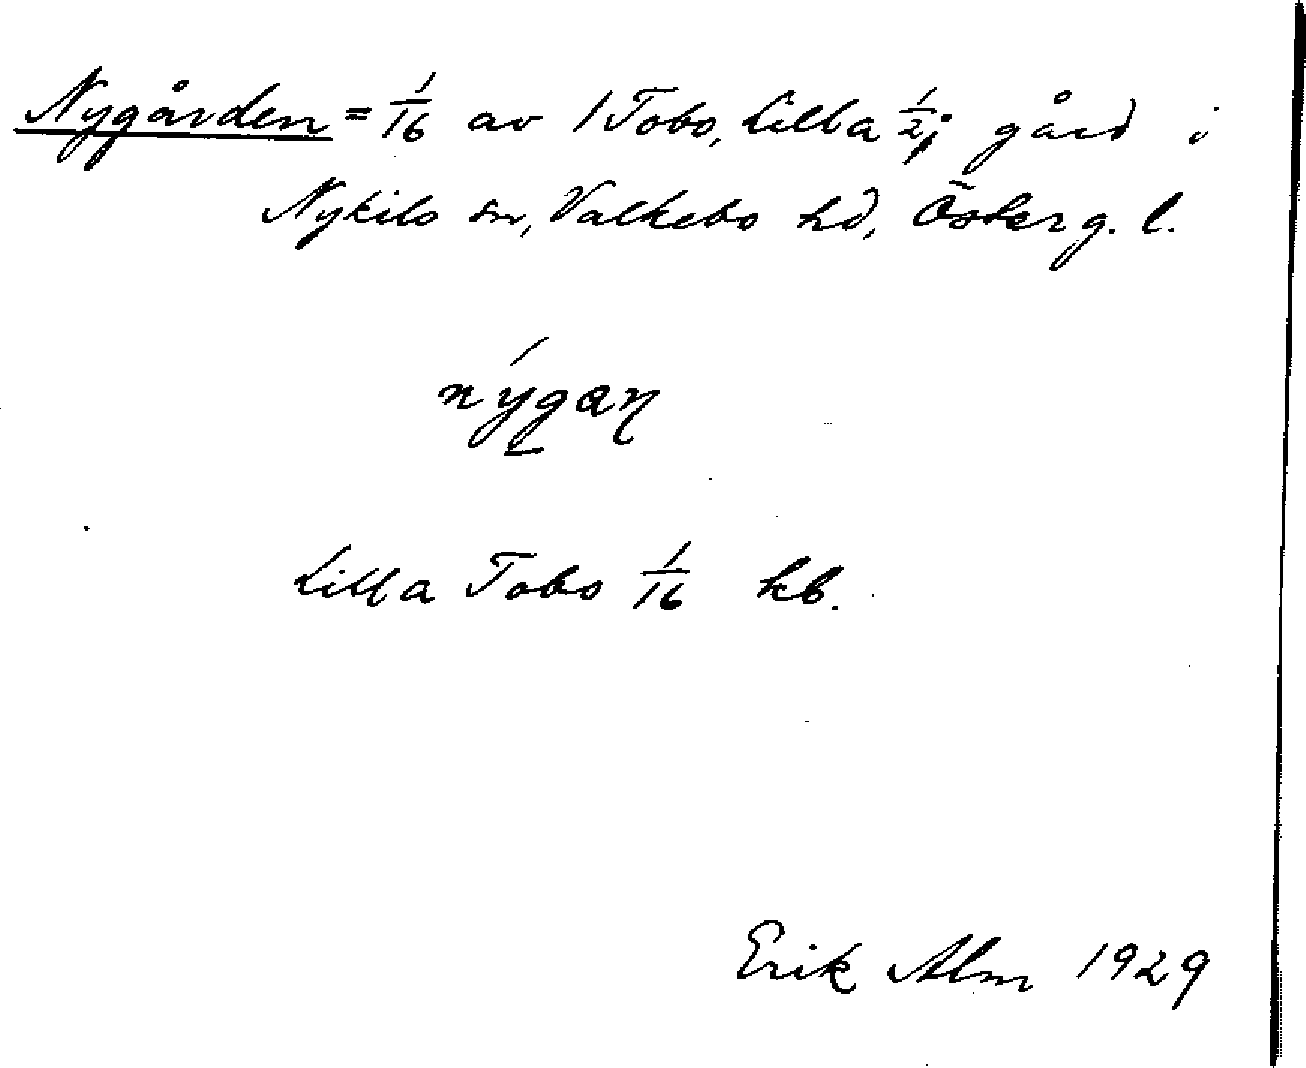 Nygården = 1/16 av 1 Tobo, Lilla 1/2; gård i
Nykils sn, Valkebo hd, Österg. l.
nýgaɳ
Lilla Tobo 1/16 kb.
Erik Alm 1929